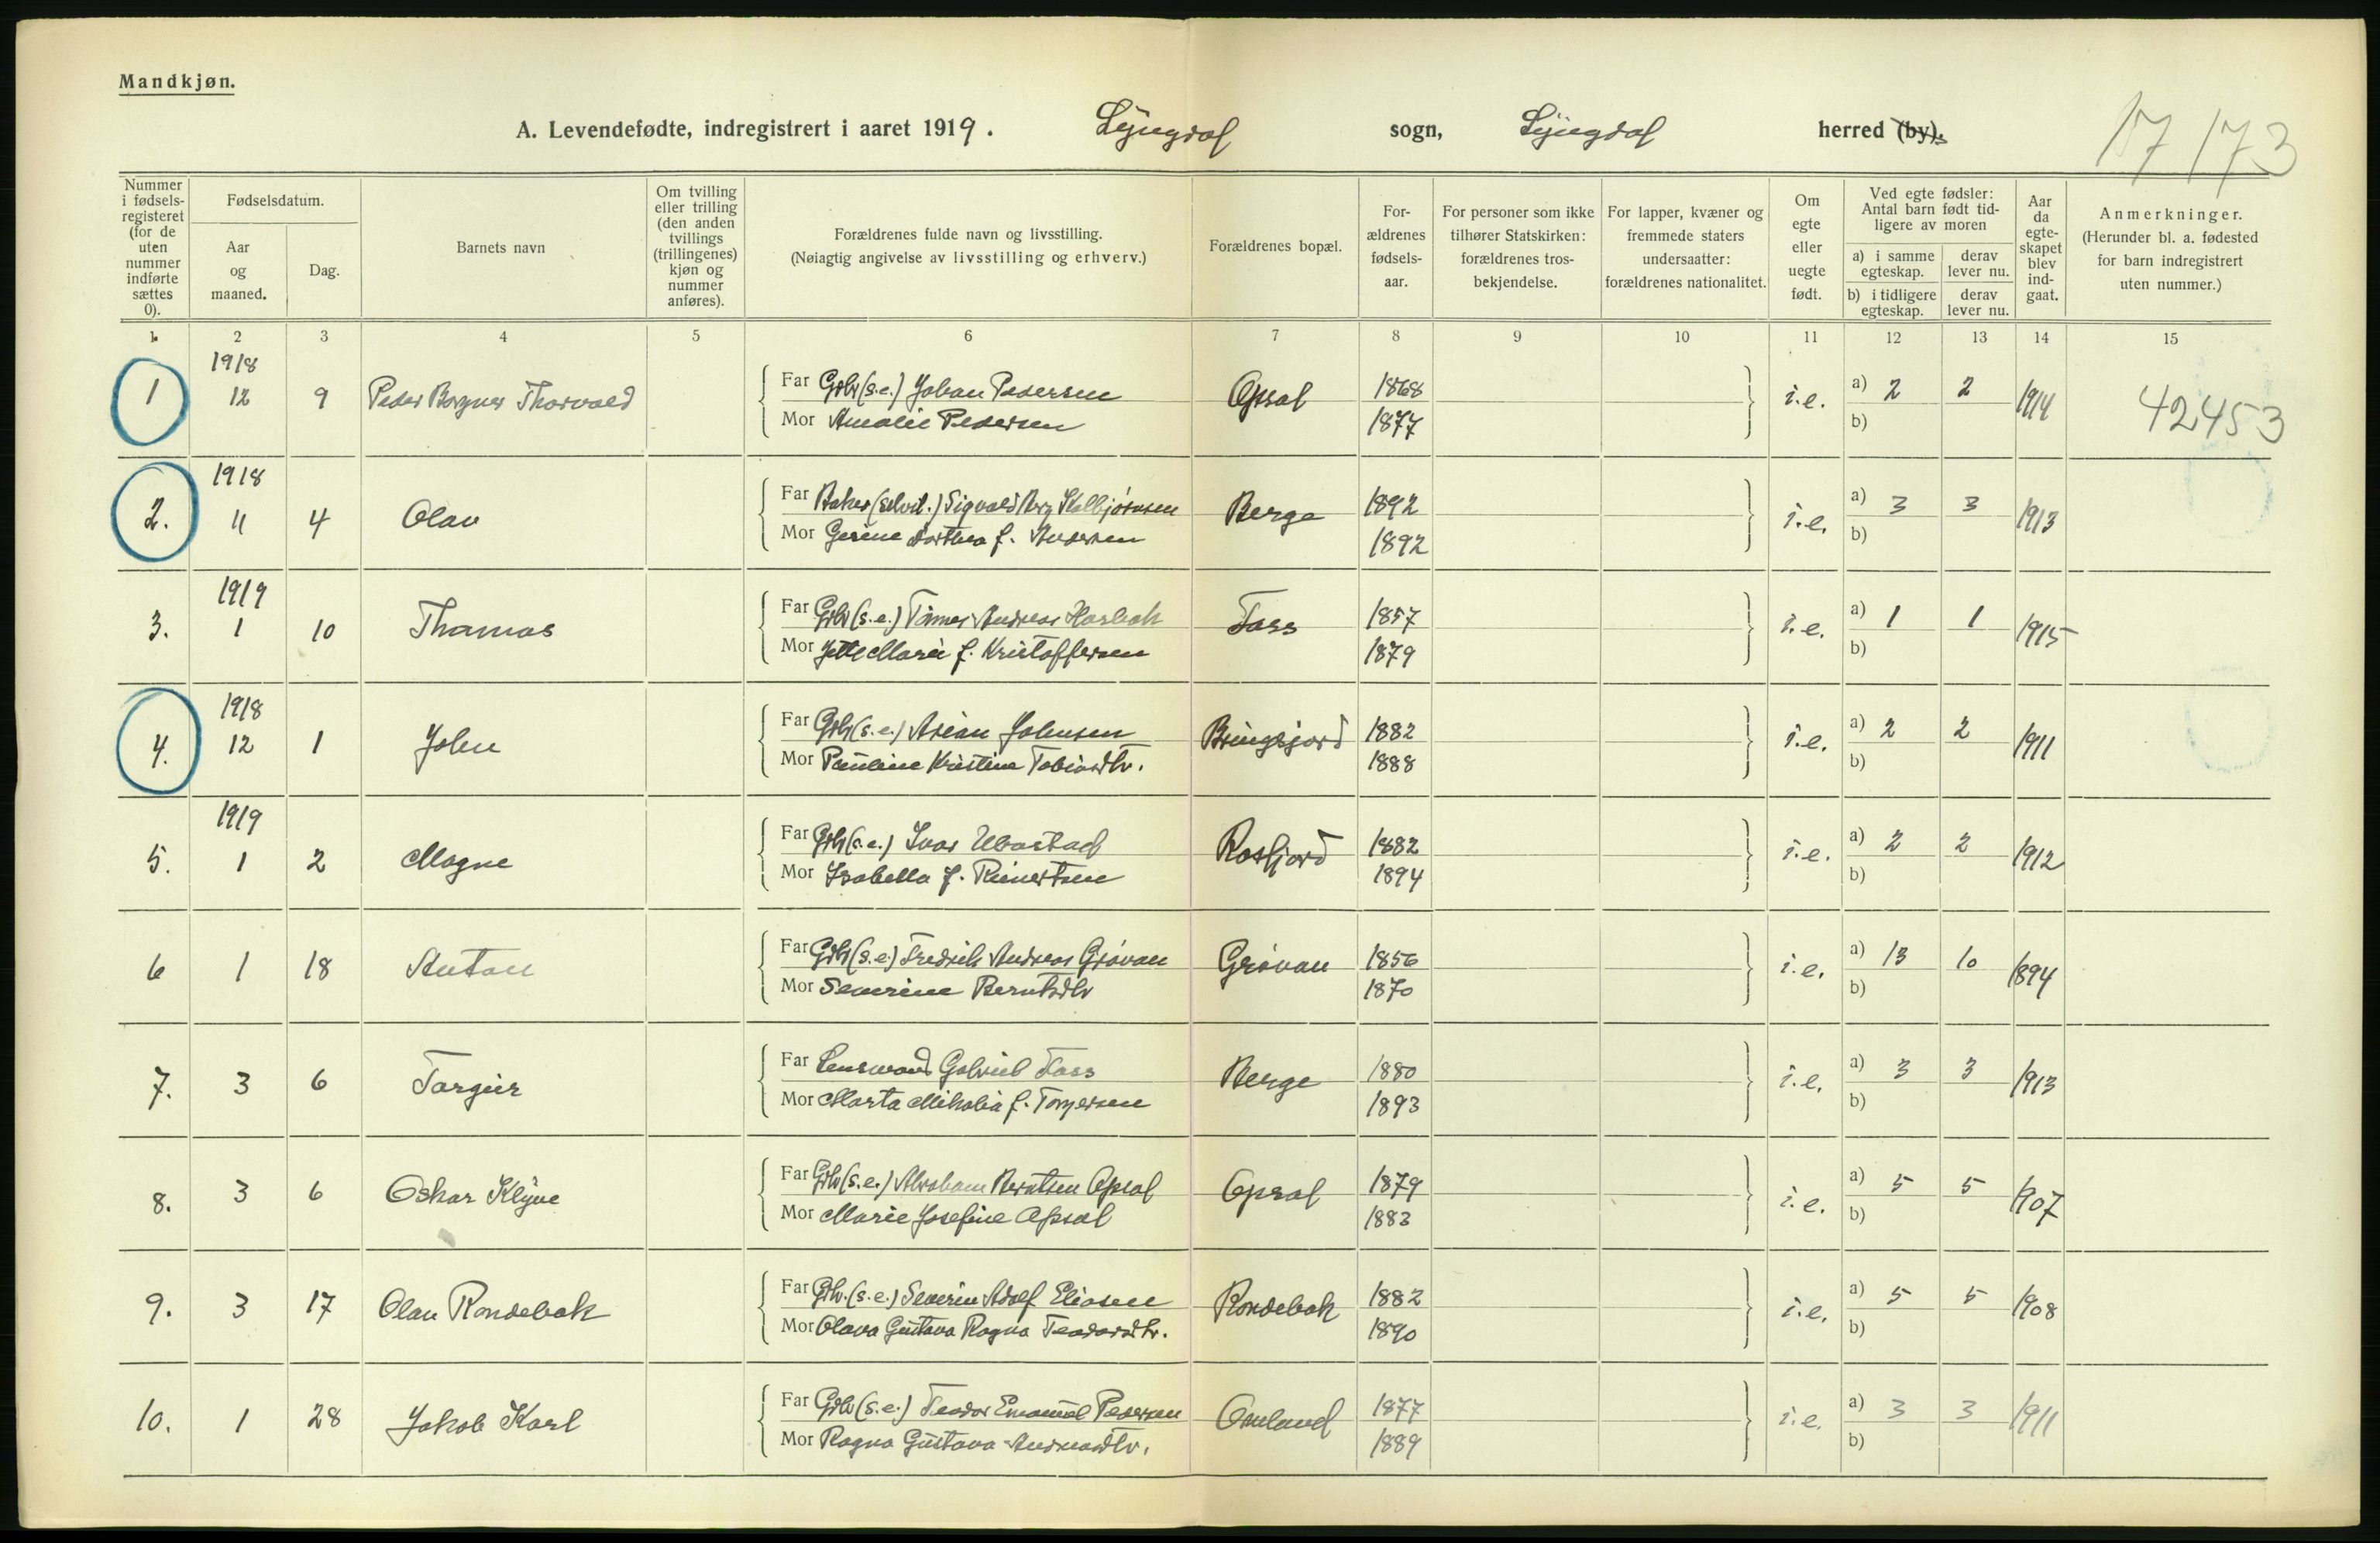 Mandkjøn.
A. Levendefødte, indregistrert i aaret 1919. Lyngdal sogn, Lyngdal herred (by).
17 173
Nummer i fødsels-registeret (for de uten nummer indførte sættes 0).
Fødselsdatum.
Aar og maaned.
Dag.
Barnets navn
Om tvilling eller trilling (den anden tvillings (trillingenes) kjøn og nummer anføres).
Forældrenes fulde navn og livsstilling.
(Nøiagtig angivelse av livsstilling og erhverv.)
Forældrenes bopæl.
For-ældrenes fødsels-aar.
For personer som ikke tilhører Statskirken: forældrenes tros-bekjendelse.
For lapper, kvæner og fremmede staters undersaatter: forældrenes nationalitet.
Om egte eller uegte født.
Ved egte fødsler: Antal barn født tid-ligere av moren
a) i samme egteskap.
derav lever nu.
b) i tidligere egteskap.
derav lever nu.
Aar da egte-skapet blev ind-gaat.
Anmerkninger.
(Herunder bl. a. fødested for barn indregistrert uten nummer.)
1. 2 3 4 5 6 7 8 9 10 11 12 13 14 15
1918
1 12 9 Peder Bergner Thorvald Far Grbr (s.e.) Johan Pedersen Opsal 1868 i.e. a) 2 2 1914 42453
Mor Amalie Pedersen 1877 b)
1918
2. 11 4 Olav Far Baker (selvst.) Sigvald Berg Kolbjørnsen Berge 1892 i.e. a) 3 3 1913
Mor Gerine Dorthea f. Andersen 1892 b)
1919
3. 1 10 Thomas Far Grbr (s.e.) Tønnes Andreas Foss 1857 i.e. a) 1 1 1915
Mor Jette Marie f. Kristoffersen 1879 b)
1918
4. 12 1 John Far Grbr (s.e.) Asian Johnsen Bringsjord 1882 i.e. a) 2 2 1911
Mor Pauline Kristine Tobiasdtr. 1888 b)
1919
5. 1 2 Magne Far Grbr (s.e.) Ivar Ubostad Rosfjord 1882 i.e. a) 2 2 1912
Mor Isabella f. Reinertsen 1894 b)
6 1 18 Anton Far Grbr (s.e.) Fredrik Andreas Grøvan Grøvan 1856 i.e. a) 13 10 1894
Mor Severine Berntsdtr 1870 b)
7. 3 6 Torgeir Far Lensmand Gabriel Foss Berge 1880 i.e. a) 3 3 1913
Mor Marta Mikalia f. Torjersen 1893 b)
8. 3 6 Oskar Klyve Far Grbr (s.e.) Abraham Berntsen Opsal Opsal 1879 i.e. a) 5 5 1907
Mor Marie Josefine Opsal 1883 b)
9. 3 17 Olav Rondebak Far Grbr. (s.e.) Severin Adolf Eliasen Rondebak 1882 i.e. a) 5 5 1908
Mor Olava Gustava Ragna Teodorsdtr. 1890 b)
10. 1 28 Jakob Karl Far Grbr (s.e.) Teodor Emanuel Pedersen Omland 1877 i.e. a) 3 3 1911
Mor Ragna Gustava Andreasdtr. 1889 b)